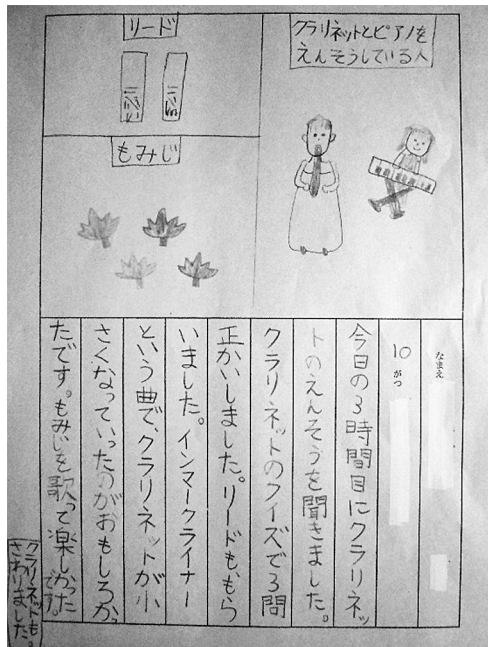 クラリネットとピアノを
えんそうしている人
リード
もみじ
なまえ
10がつ
今日の3時間目にクラリネッ
トのえんそうを聞きました。
クラリネットのクイズで3問
正かいしました。リードも、もら
いました。インマークライナー
という曲で、クラリネットが小
さくなっていったのがおもしろかっ
たです。もみじを歌って楽しかった
です。
クラリネットも
さわりました。